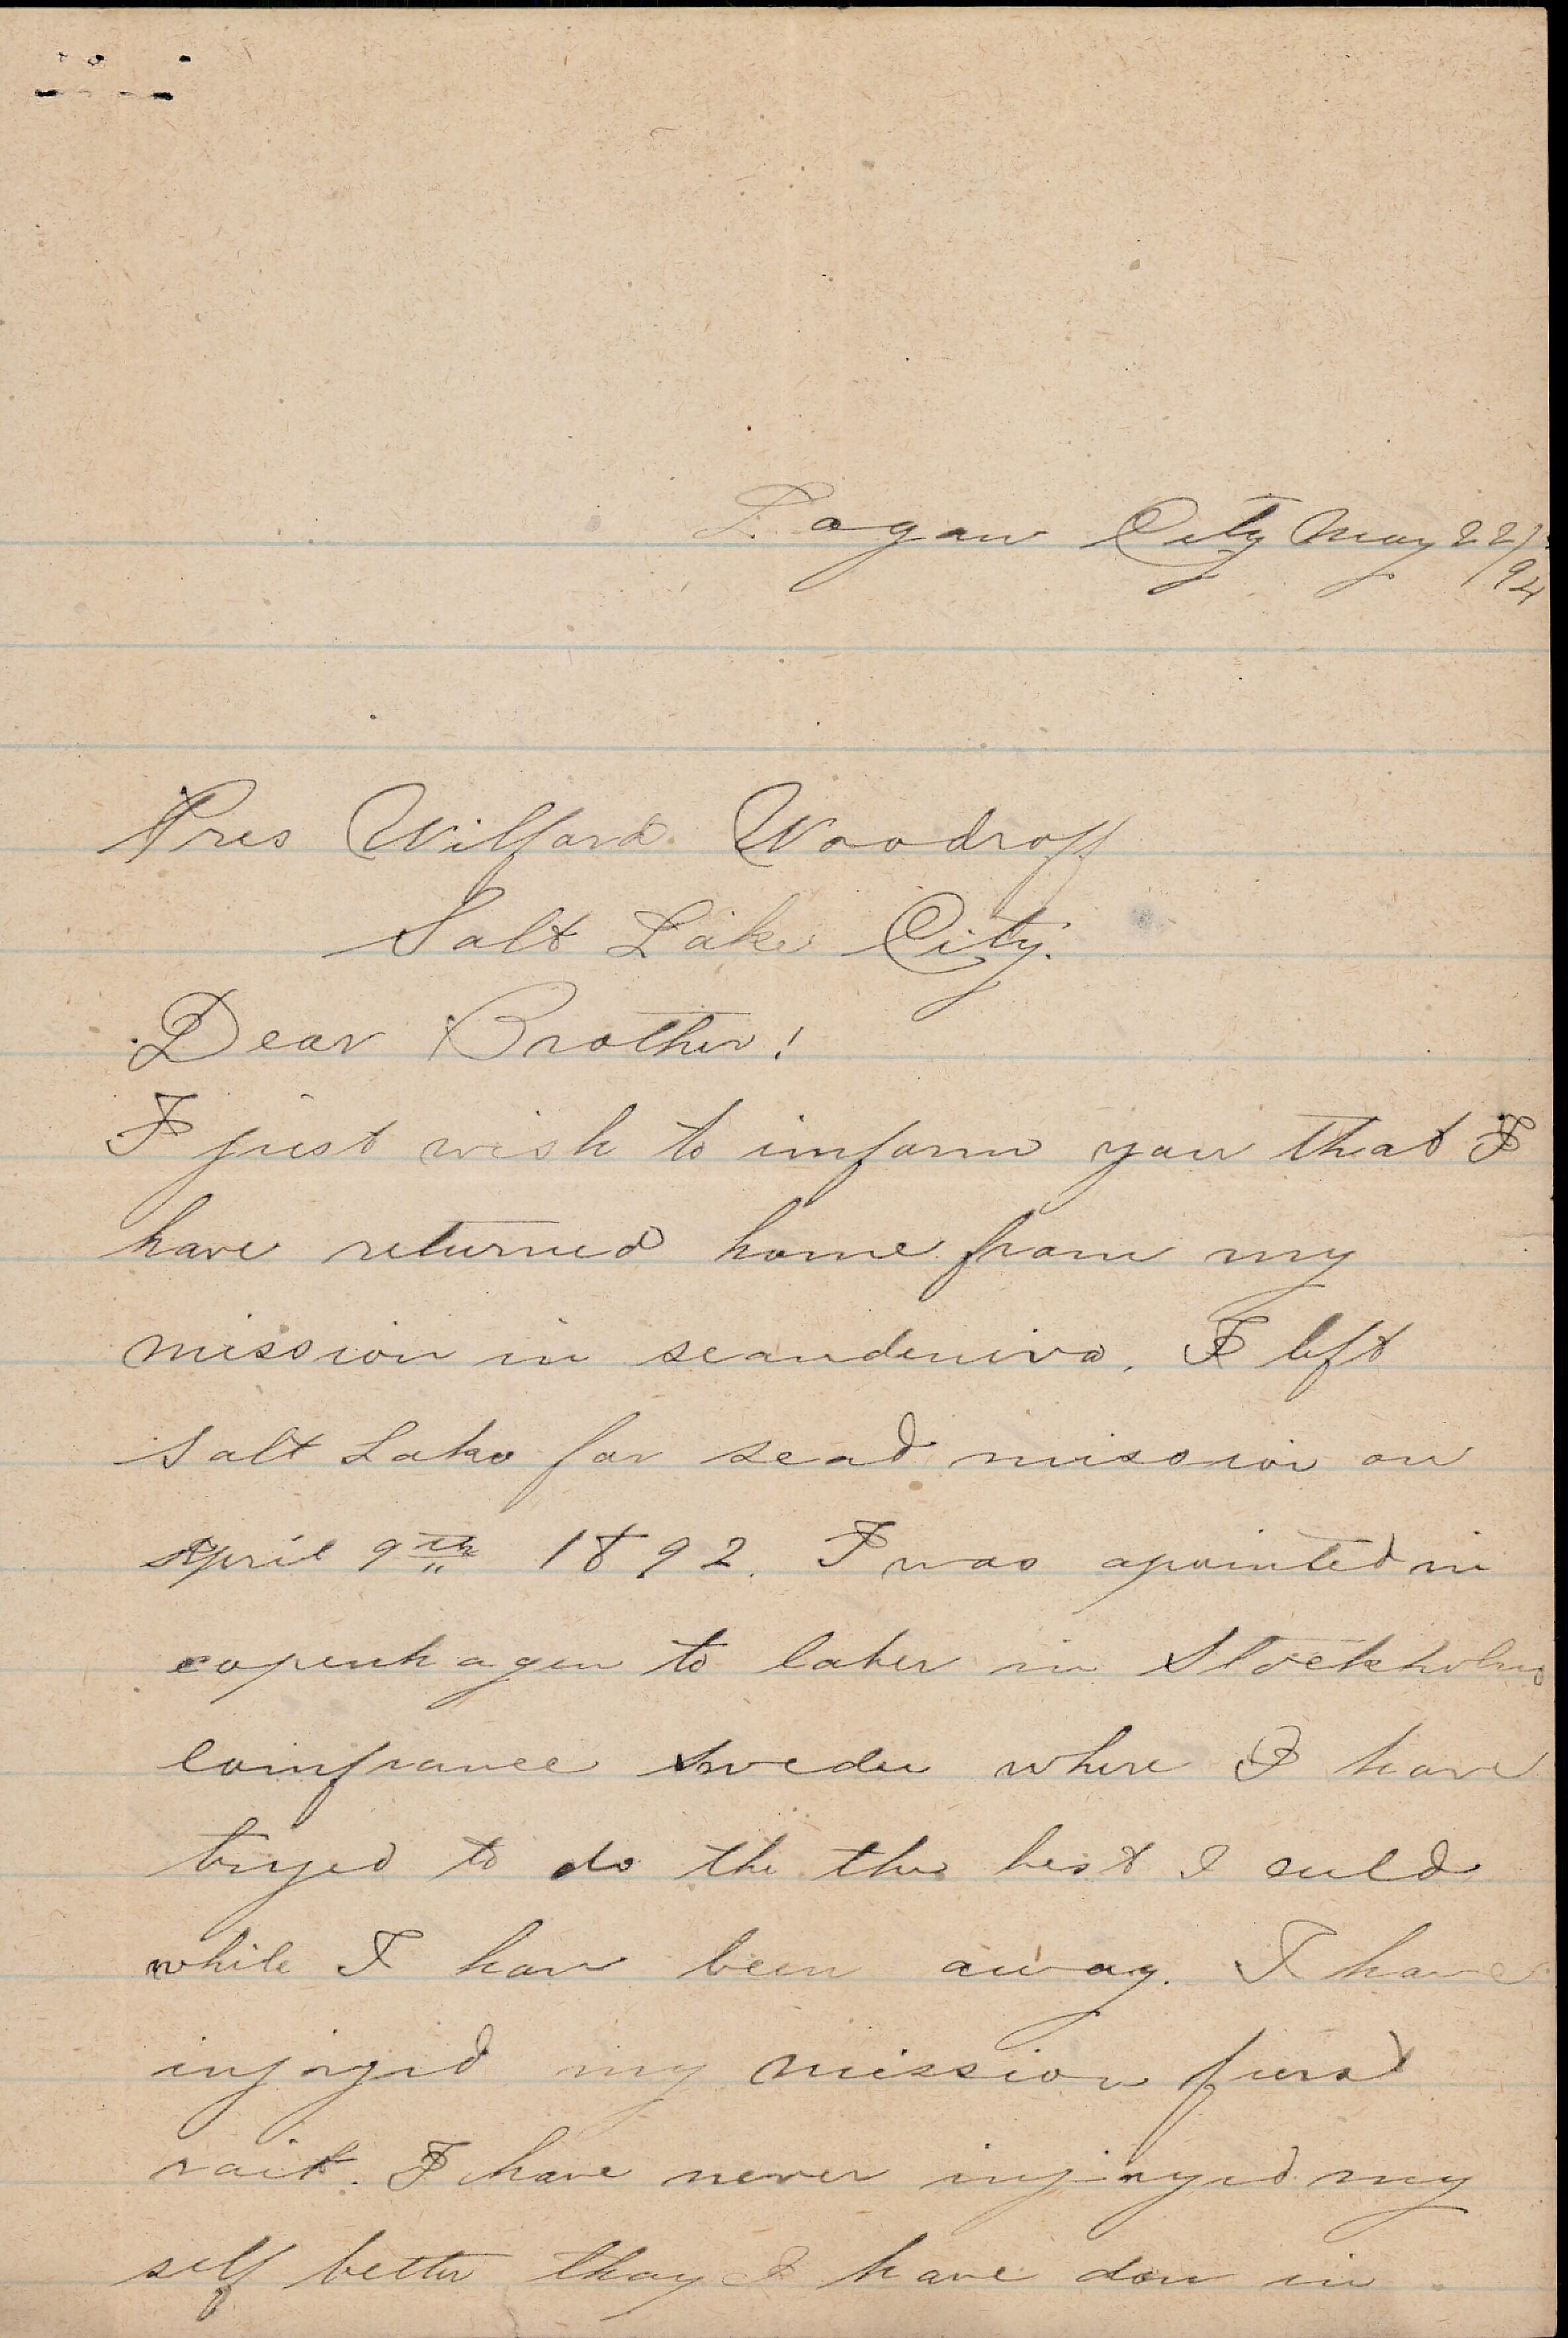 Logan City May 22/
94
Pres Wilford Woodroff
Salt Lake City.
Dear Brother!
I just wish to imform you that I
have returned home from my
mission in scandeniva. I left
Salt Lake for scad mission on
April 9th 1892. I was apointed in
copenhagen to laber in Stockholm
comfrance Sweden where I have
tryed to do the the best I culd
while I have been away. I have
injoyed my mission furst
rait. I have never injoyed my
self better than I have don in